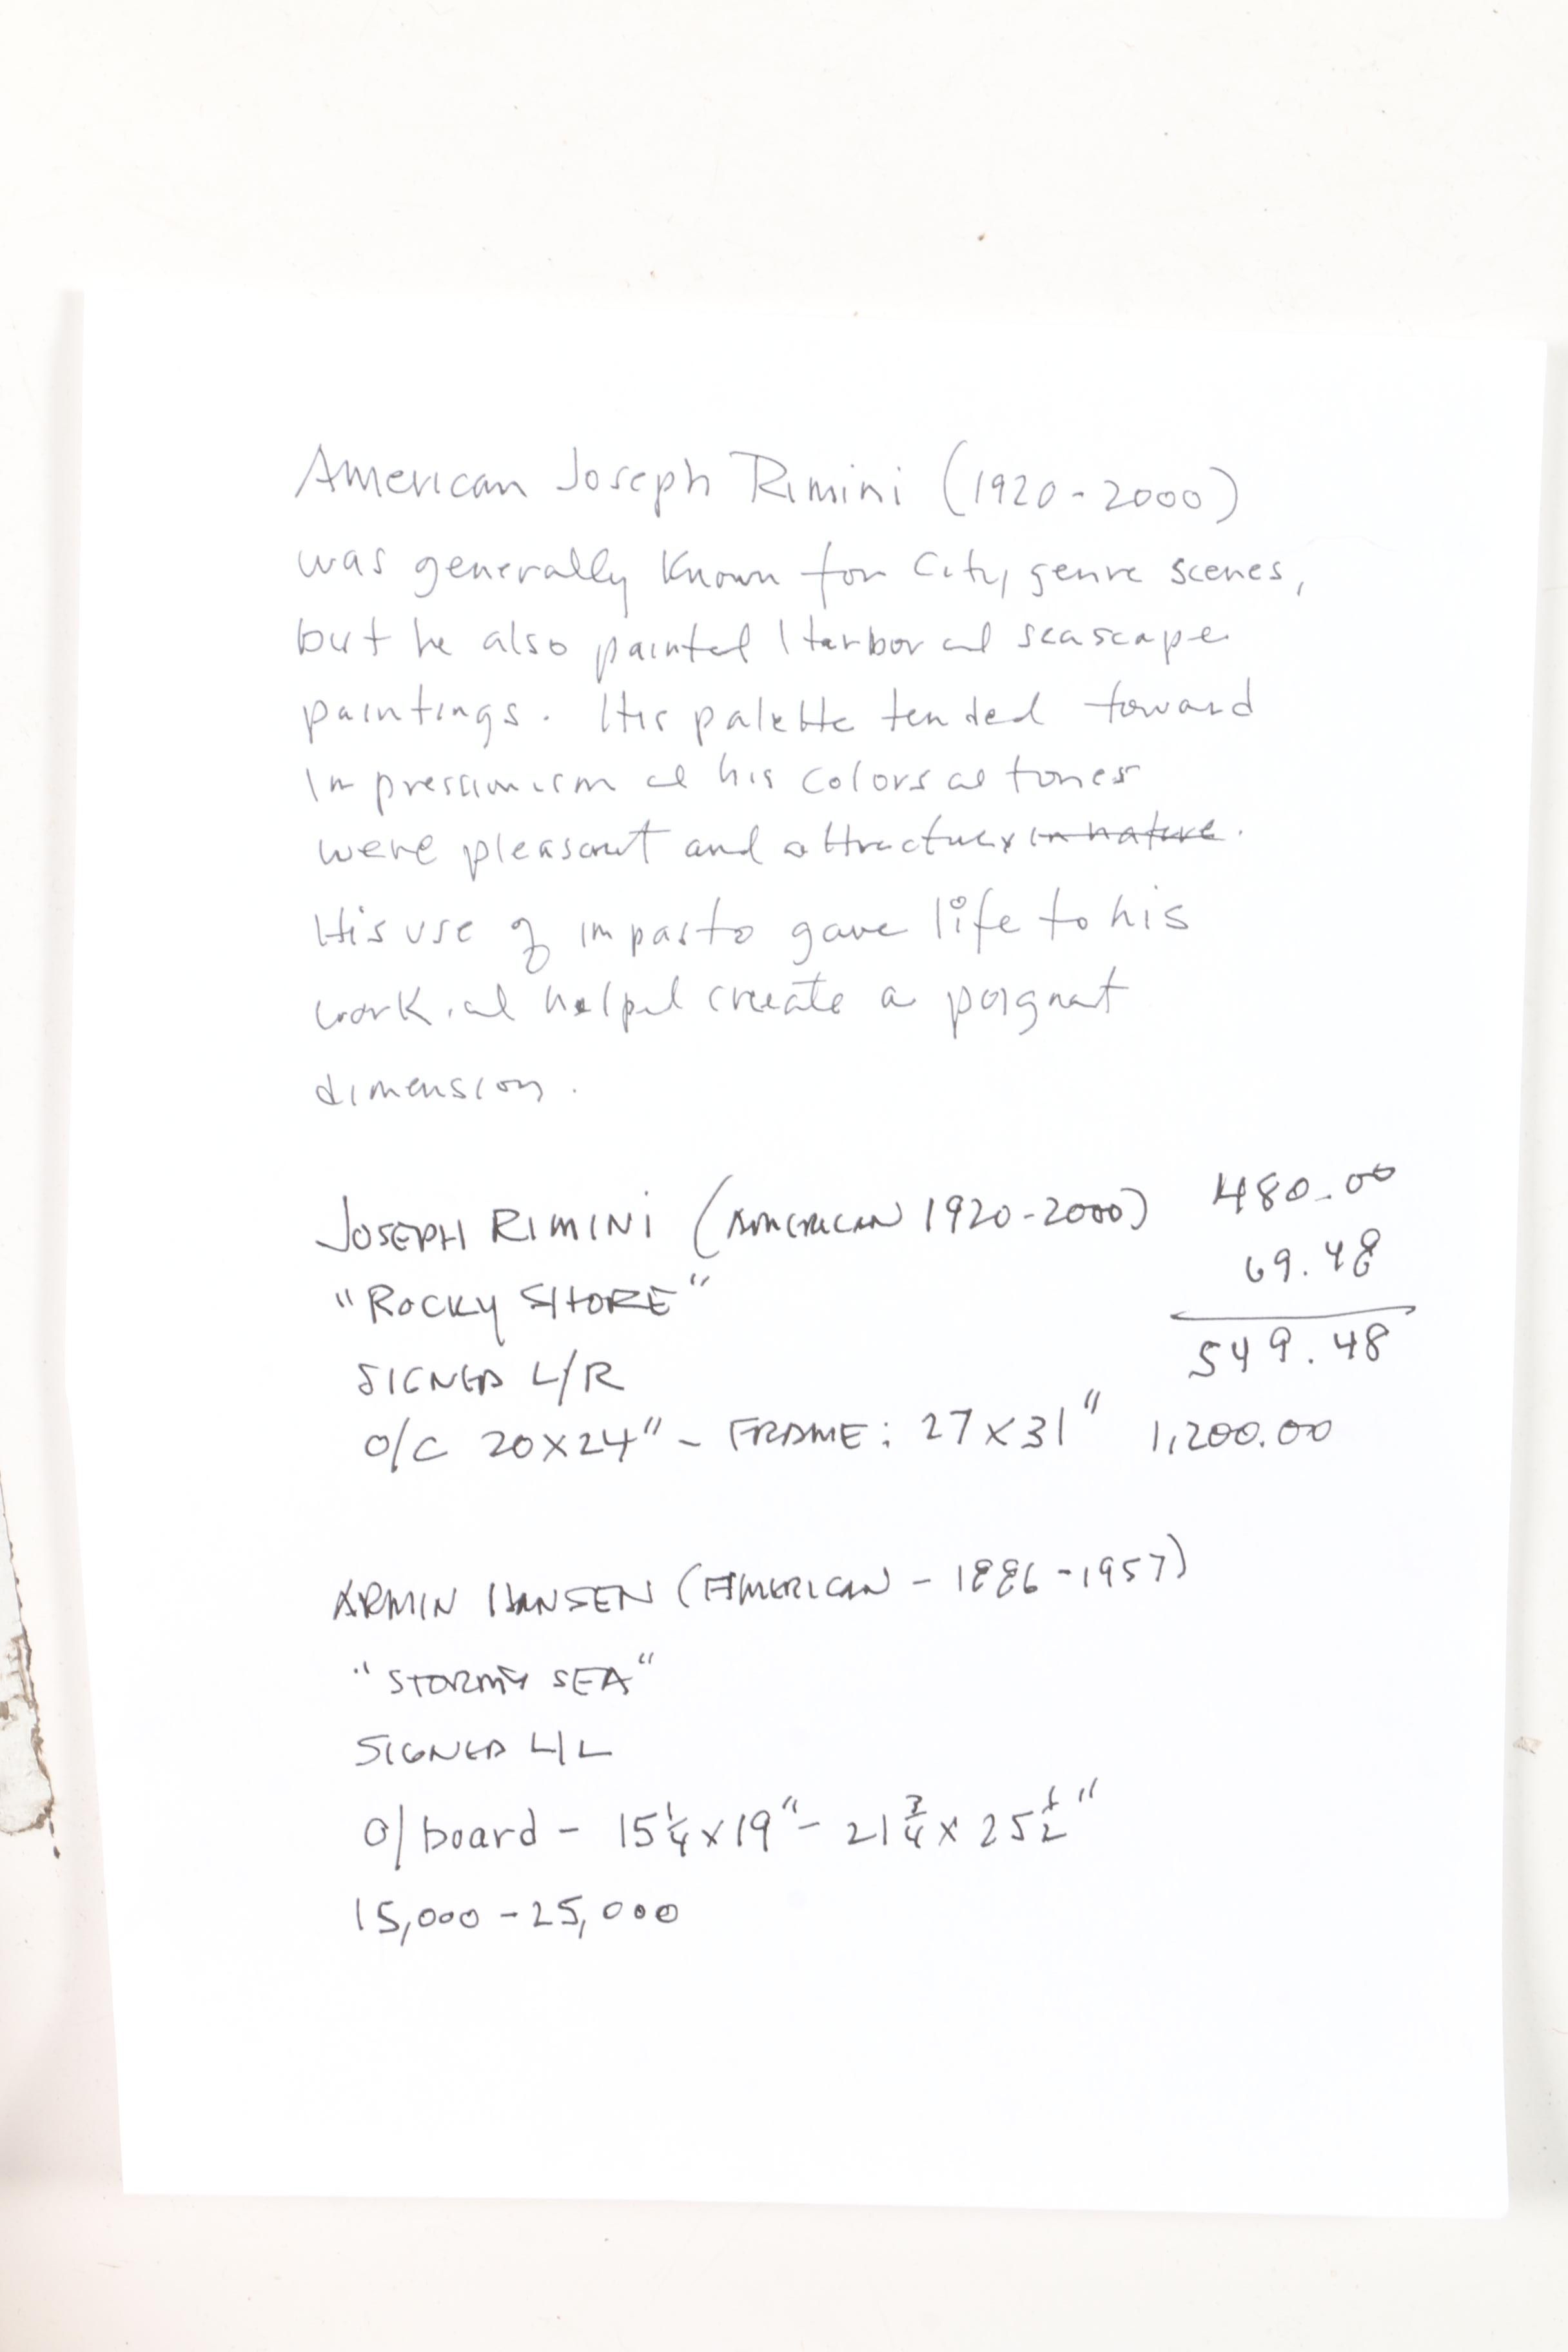 American Joseph Rimini (1920-2000)
was generally known for City genre scenes,
but he also painted Harbor and seascape
paintings. His palette tended toward
Impressionism and his colors and tones
were pleasant and attractive in nature.
His use of impasto gave life to his
work and helped create a poignat
dimension.
JOSEPH RIMINI (AMERICAN 1920-2000) 480.00
"ROCKY SHORE" 69.48
SIGNED L/R 549.48
O/C 20X24" - FRAME: 27X31" 1,200.00
ARMIN HANSEN (AMERICAN - 1886-1957)
"STORMY SEA"
SIGNED L/L
O/board - 15 1/4 x 19" - 21 3/4 x 25 1/2"
15,000 - 25,000